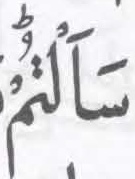 سَاَلْتُمْؕ